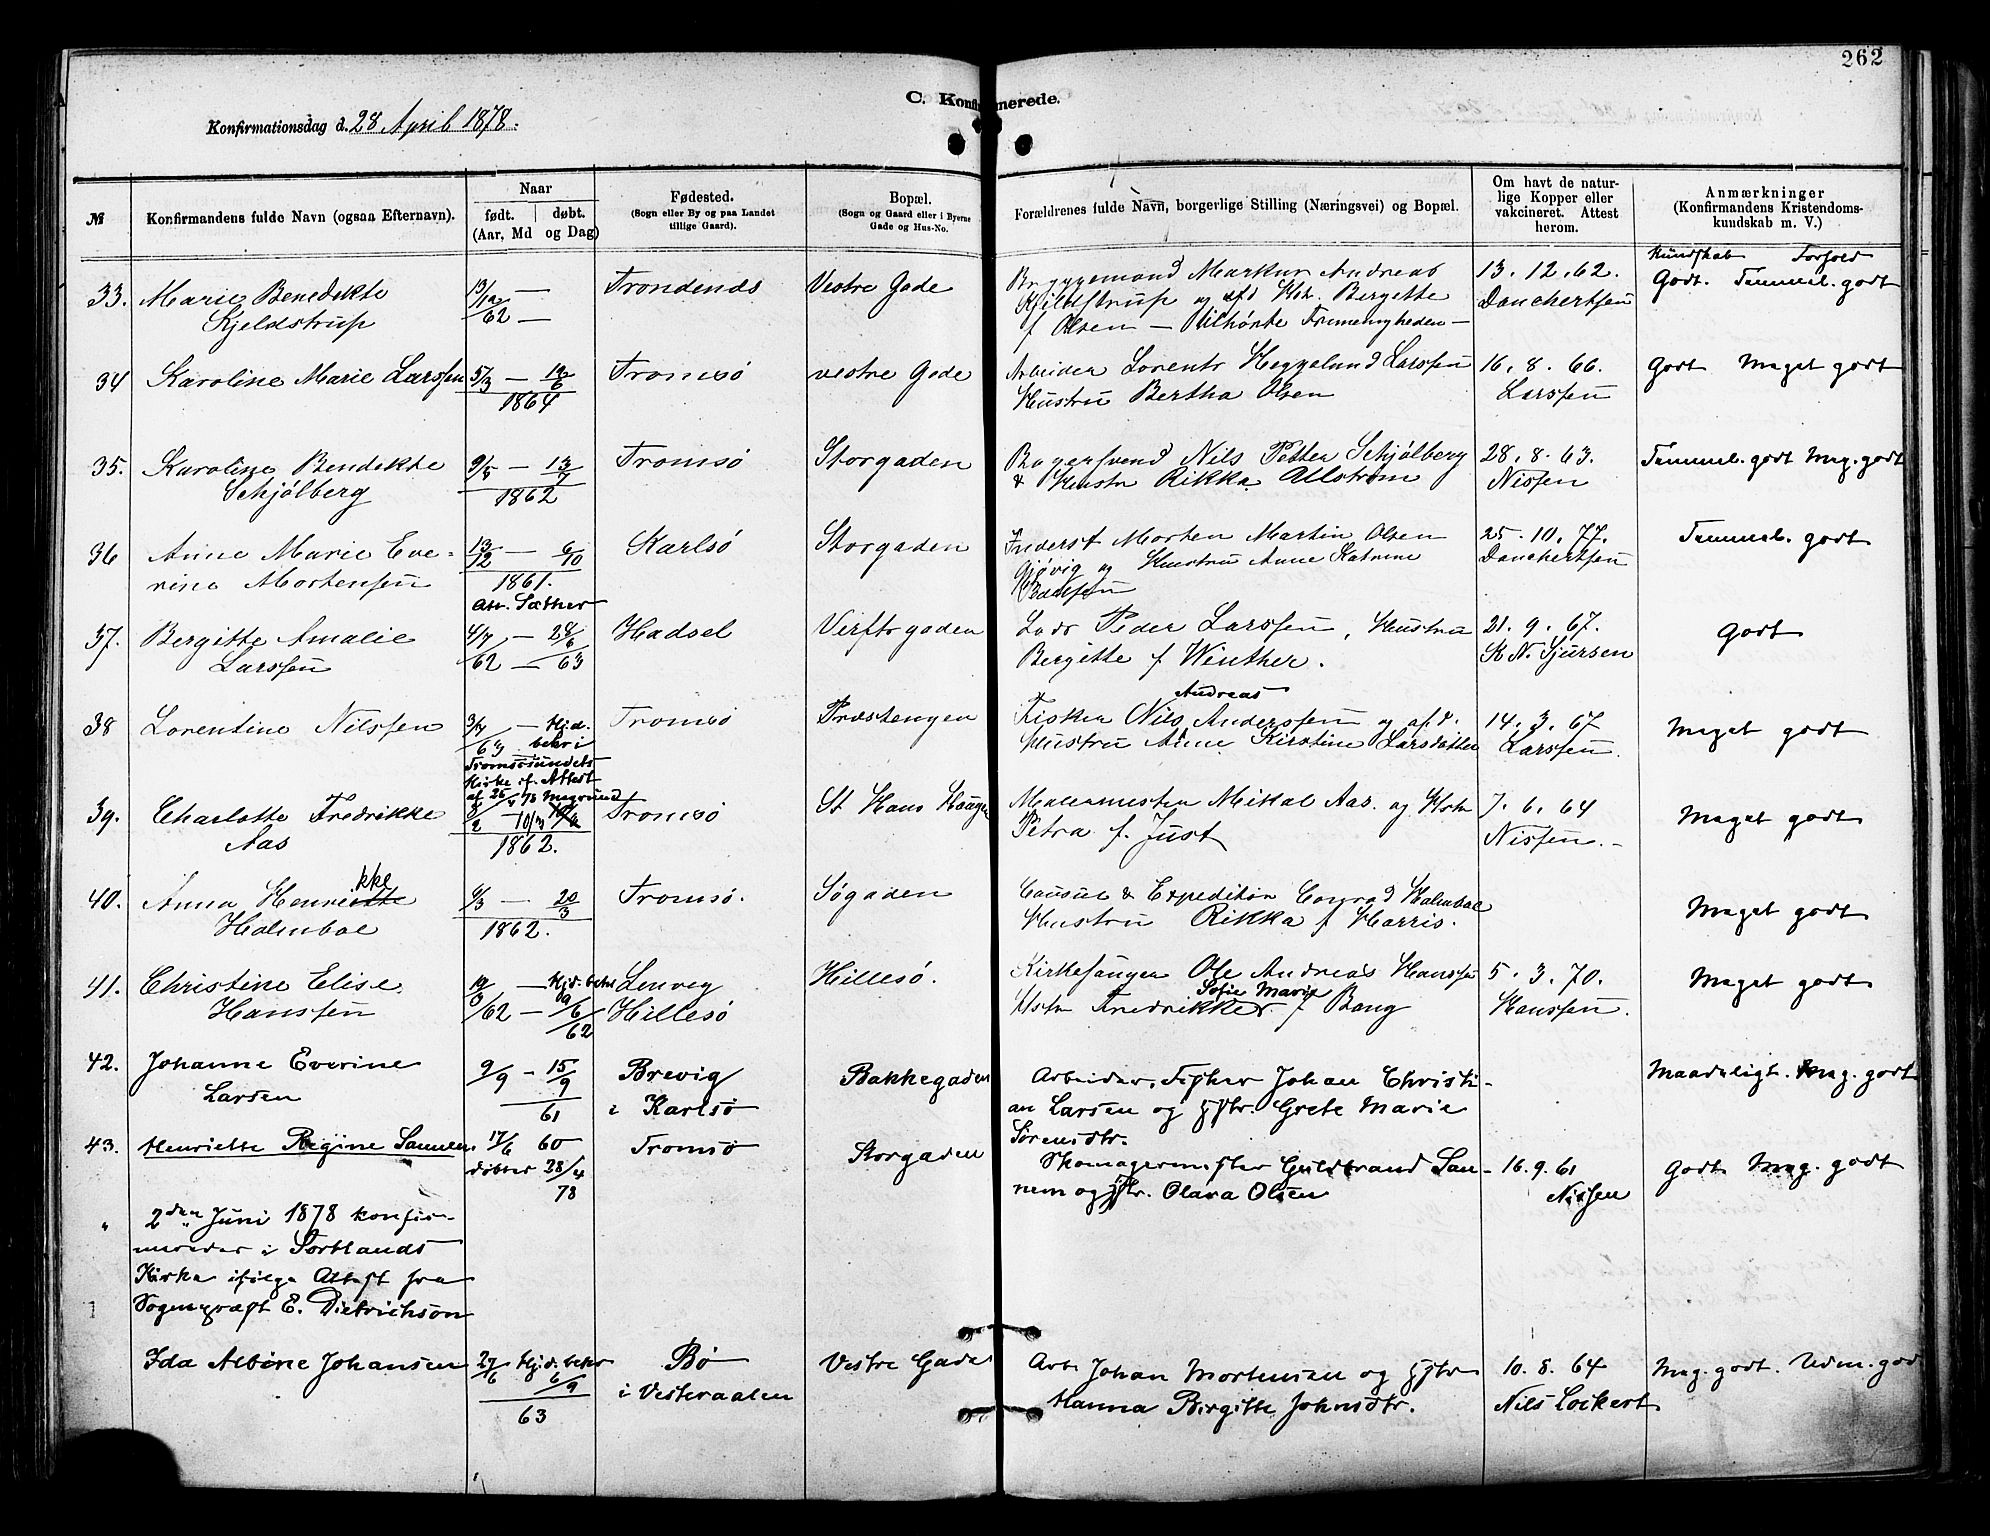 262
C. Konfirmerede.
Konfirmationsdag d. 28 April 1878.
№
Konfirmandens fulde Navn (ogsaa Efternavn).
Naar
født. døbt.
(Aar, Md og Dag)
Fødested.
(Sogn eller By og paa Landet
tillige Gaard).
Bopæl.
(Sogn og Gaard eller i Byerne
Gade og Hus-No.
Forældrenes fulde Navn, borgerlige Stilling (Næringsvei) og Bopæl.
Om havt de natur-
lige Kopper eller
vakcineret. Attest
herom.
Anmærkninger
(Konfirmandens Kristendoms-
kundskab m. V.)
Kundskab Forhold
33. Marie Benedikte
Kjeldstrup
13/12 —
62 —
Trondends
Vestre Gade
Markus Andreas
Kjeldstrup og Hstr. Bergette
f Olsen —
13. 12. 62.
Danchertsen
Godt. Temmel. godt
34 Karoline Marie Larssen
5/3 — 12/6
1864
Tromsö
vestre Gade
Arbeider Lorents Heggelund Larssen
Hustru Bertha Olsen
16. 8. 66.
Larssen
Godt Meget godt
35. Karoline Bendikte
Schjölberg
9/5 — 13/7
1862
Tromsö
Storgaden
Bagersvend Nils Petter Schjölberg
& Hustr Rikka Allström
28. 8. 63.
Nissen
Temmel. godt Meg. godt
36 Anne Marie Eve-
rine Mortensen
13/12 — 6/10
1861.
Att. Sæther
Karlsö
Storgaden
Inderst Morten Martin Olsen
Gjövig og Hustru Anne Katrine
25. 10. 77.
Danchertsen
Temmel. godt
37. Bergitte Amalie
Larssen
4/7 — 24/6
62 — 63
Hadsel
Verftsgaden
Lods Peder Larssen, Hustru
Bergitte f Winther.
21. 9. 67.
K N. Sjursen
Godt
38 Lorentine Nilssen
3/7 — Hjd.
63 bekr i
Tromsösundets
Kirke if. Attest
af 25/4 78 Magelund
Tromsö
Præstengen
Andreas
Fisker Nils Anderssen og afd.
Hustru Anne Kirstine Larsdatter
14. 3. 67
Larssen
Meget godt
39. Charlotte Fredrikke
Aas
1862.
Tromsö
St Hans Haugen
Malermester Mikal Aas. og Hstr
Petra f. Just
7. 6. 64
Nissen. —
Meget godt
40. Anna Henrikke
Holmboe
6/3 — 20/3
1862.
Tromsö.
Søgaden
Consul & Expeditör Conrad Holmboe
Hustru Rikka f Harris.
Meget godt
41. Christine Elise
Hanssen
— Hjd. bekr
62 — 9/6
62
Lenvig
Hillesö
Hillesö.
Kirkesanger Ole Andreas Hanssen
Sofie Marie
Hstr Fredrikke f Bang
5. 3. 70.
Hanssen.
Meget godt
42. Johanne Everine
Larsen
9/9 - 15/9
61
Brevig
i Karlsö
Bakkegaden
Arbeider, Fisker Johan Christi-
an Larsen og Hstr. Grete Marie
Sörensdtr.
Maadeligt. Meg. godt
43. Henriette Regine Sannem.
17/6 60
döbter 28/4
78
Tromsö
Storgaden
Skomagermester Guldbrand San-
nem og Hstr. Olava Olsen
16. 9. 61
Nissen
Godt Meg. godt
" 2den Juni 1878 konfir-
meredes i Sortlands
Kirke ifölge Attest fra
Sognepræst E. Dietrichson
Ida Albine Johansen
27/6 Hjd. bekr
6/9
63
Bö
i Vesteraalen
Vestre Gade
Arb. Johan Mortensen og Hstr
Hanna Birgitte Johnsdtr.
10. 8. 64
Nils Lockert
Meg. godt. Udm. god